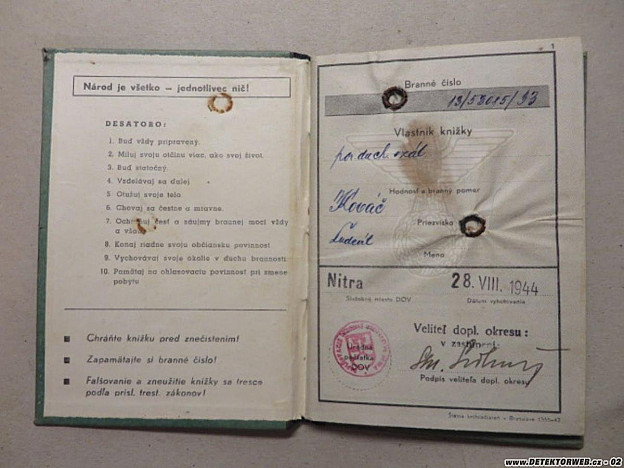 Národ je všetko — jednotlivec nič!
DESATORO:
1. Buď vždy pripravený.
2. Miluj svoju otčinu viac, ako svoj život.
3. Buď statočný.
4. Vzdelávaj sa ďalej.
5. Otužuj svoje telo.
6. Chovaj sa čestne a mravne.
7. Ochraňuj česť a záujmy brannej moci vždy
a všade.
8. Konaj riadne svoju občiansku povinnosť.
9. Vychovávaj svoje okolie v duchu brannosti.
10. Pamätaj na ohlasovaciu povinnosť pri zmene
pobytu
Chráňte knižku pred znečistením!
Zapamätajte si branné číslo!
Falšovanie a zneužitie knižky sa tresce
podľa prísl. trest. zákonov!
1
Branné číslo
13/53015/33
Vlastník knižky
Hodnosť a branný pomer
Kováč
Priezvisko
Meno
Nitra
28. VIII. 1944
Služobné miesto DOV
Dátum vyhotovenia
Úradná
pečiatka
DOV
Veliteľ dopl. okresu:
v zastúpení:
Podpis veliteľa dopl. okresu
www.DETEKTORWEB.cz - 02